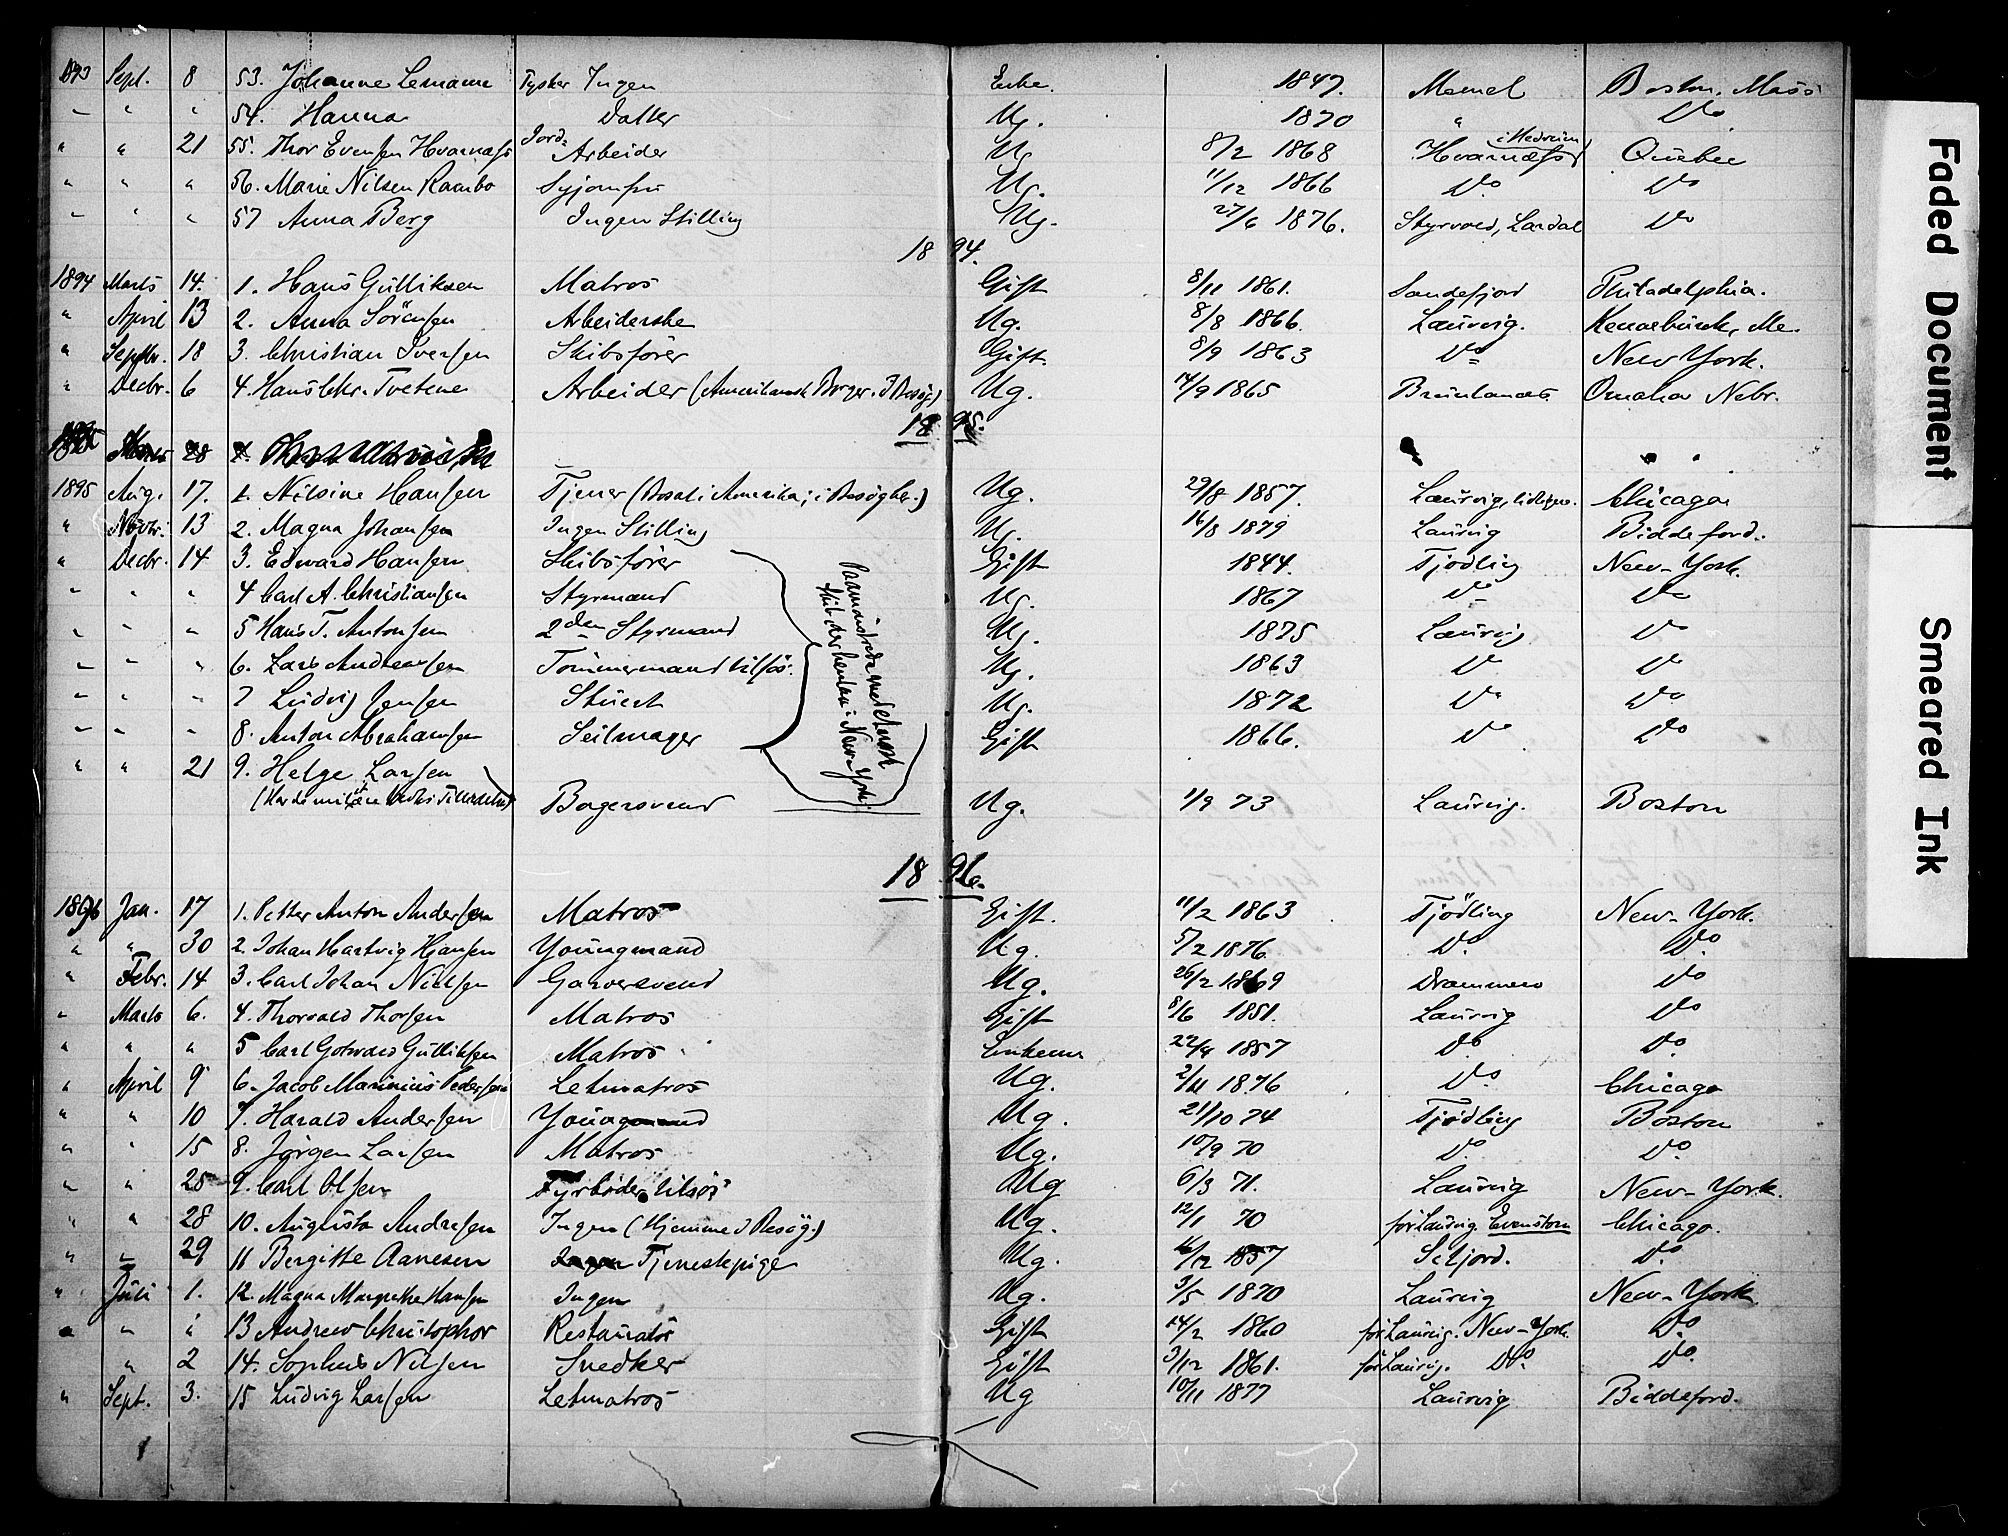 1893 Sept. 8 53. Johanne Lemann Tysker Ingen Enke. 1847. Memel Boston, Mass
" " " 54. Hanna Datter Ug. 1870 " Do
" " 21 55. Thor Evensen Hvarnæs Jord-Arbeider Ug 8/2 1868 Hvarnæs i Hedrum Quebec
" " " 56. Marie Nilsen Rambo Syjomfru Ug. 11/12 1866 Do Do
" " " 57 Anna Berg Ingen Stilling Ug. 27/6 1876. Styrvold, Lardal Do
1894.
1894 Marts 14. 1. Hans Gulliksen Matros Gift 8/11 1861. Sandefjord Philadelphia.
" April 13 2. Anna Sörensen Arbeiderske Ug. 8/8 1866. Laurvig. Kennebunk, Me.
" Septbr. 18 3. Christian Iversen Skibsfører Gift. 8/9 1863 Do New York.
" Decbr. 6 4. Hans Chr. Tvetene Arbeider (Amerikansk Borger. I Besøg) Ug. 14/9 1865 Brunlanæs. Omaha Nebr.
1895.
28
1895 Aug. 17. 1. Nilsine Hansen Tjener (Bosat i Amerika; i Besøg her.) Ug. 29/8 1857. Laurvig, Chicago
" Novbr. 13 2. Magna Johansen Ingen Stilling Ug. 16/8 1879 Laurvig Biddeford.
" Decbr. 14 3. Edward Hansen Skibsfører Gift 1844. Tjødling New-York.
" " " 4 Carl A. Christiansen Styrmand Ug. 1867 Do Do
" " " 5 Hans T. Antonsen 2den Styrmand Ug. 1875 Laurvig Do
" " " 6. Lars Andreassen Tømmermand tilsøs. Ug. 1863 Do Do
" " " 7 Ludvig Jensen Stuert Ug. 1872 Do Do
" " " 8. Anton Abrahamsen Seilmager Gift 1866. Do Do
Paamønstrede med
Skib der hentes i New York.
" " 21 9. Helge Larsen
(Har de militære Tilladelse) Bagersvend Ug. 1/9 73 Laurvig. Boston
1896.
1896 Jan. 17 1. Petter Anton Andersen Matros Gift. 11/2 1863 Tjödling New-York.
" " 30 2. Johan Hartvig Hansen Youngmand Ug. 5/2 1876. Do. Do.
" Febr. 14 3. Carl Johan Nielsen Garversvend Ug. 26/2 1869 Drammen Do
" Marts 6. 4. Thorvald Thorsen Matros Gift 8/6 1851. Laurvig Do
" " " 5 Carl Gotvard Gulliksen Matros Enkem 22/4 1857 Do. Do.
" April 9 6. Jacob Marinius Pedersen Letmatros Ug. 2/11 1876 Do. Chicago
" " 10 7. Harald Andersen Youngmand Ug. 21/10 74 Tjødling Boston
" " 15 8. Jørgen Larsen Matros Ug. 10/9 70 Do. Do.
" " 25 9. Carl Olsen Fyrbøder tilsøs Ug 6/3 71. Laurvig New-York.
" " 28 10. Augusta Andresen Ingen (Hjemme i Besøg.) Ug. 12/1 70 før Laurvig. Evenston Chicago.
" " 29 11 Bergitte Aanesen Ingen Tjenestepige Ug. 16/12 1857 Seljord. Do.
" Juli 1. 12. Magna Margrethe Hansen Ingen Ug. 3/5 1870 Laurvig New-York
" " " 13 Andrew Christophor Restauratør Gift 14/2 1860 før Laurvig. New-York. Do.
" 2 14. Sophus Nilsen Snedker Gift 3/12 1861. før Laurvig. Do. Do.
" Sept. 3. 15 Ludvig Larsen Letmatros Ug 10/11 1877 Laurvig Biddeford.
Faded Document
Smeared Ink